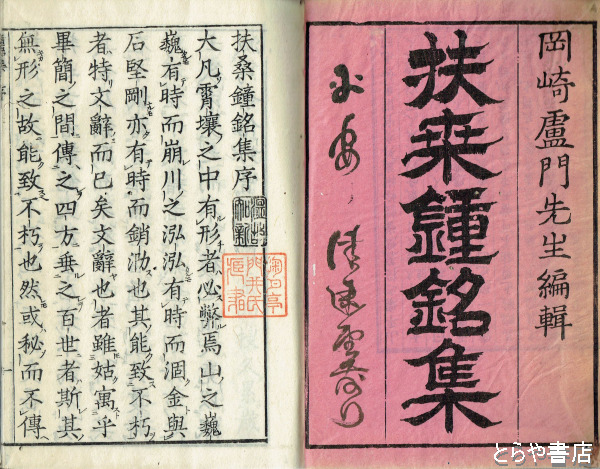 岡崎盧門先生編輯
扶桒鐘銘集
扶桑鐘銘集序
大凡霄壤之中有形者必弊焉山之巍
巍有時而崩川之泓泓有時而涸金與
石堅剛亦有時而銷泐也其能致不朽
者特文辭而已矣文辭也者雖姑寓乎
畢簡之間傳之四方垂之百世者斯其
無形之故能致不朽也然或秘而不傳
とらや書店